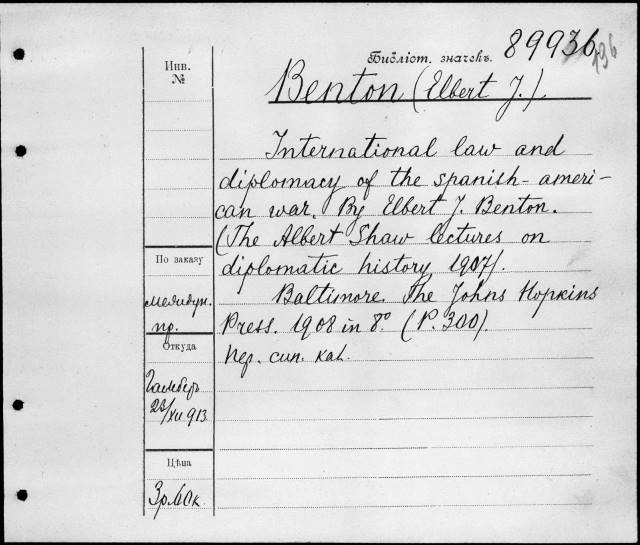 Библіот. значекъ. 89936
136
Инв.
№
Benton (Elbert J.)
International law and
diplomacy of the spanish-ameri-
can war. By Elbert J. Benton.
(The Albert Shaw lectures on
diplomatic history, 1907).
Baltimore. The Johns Hopkins
Press. 1908 in 8º (P. 300)
пер. син. кал.
По заказу
пр.
Откуда
23/XII 913
Цѣна
3р.60к